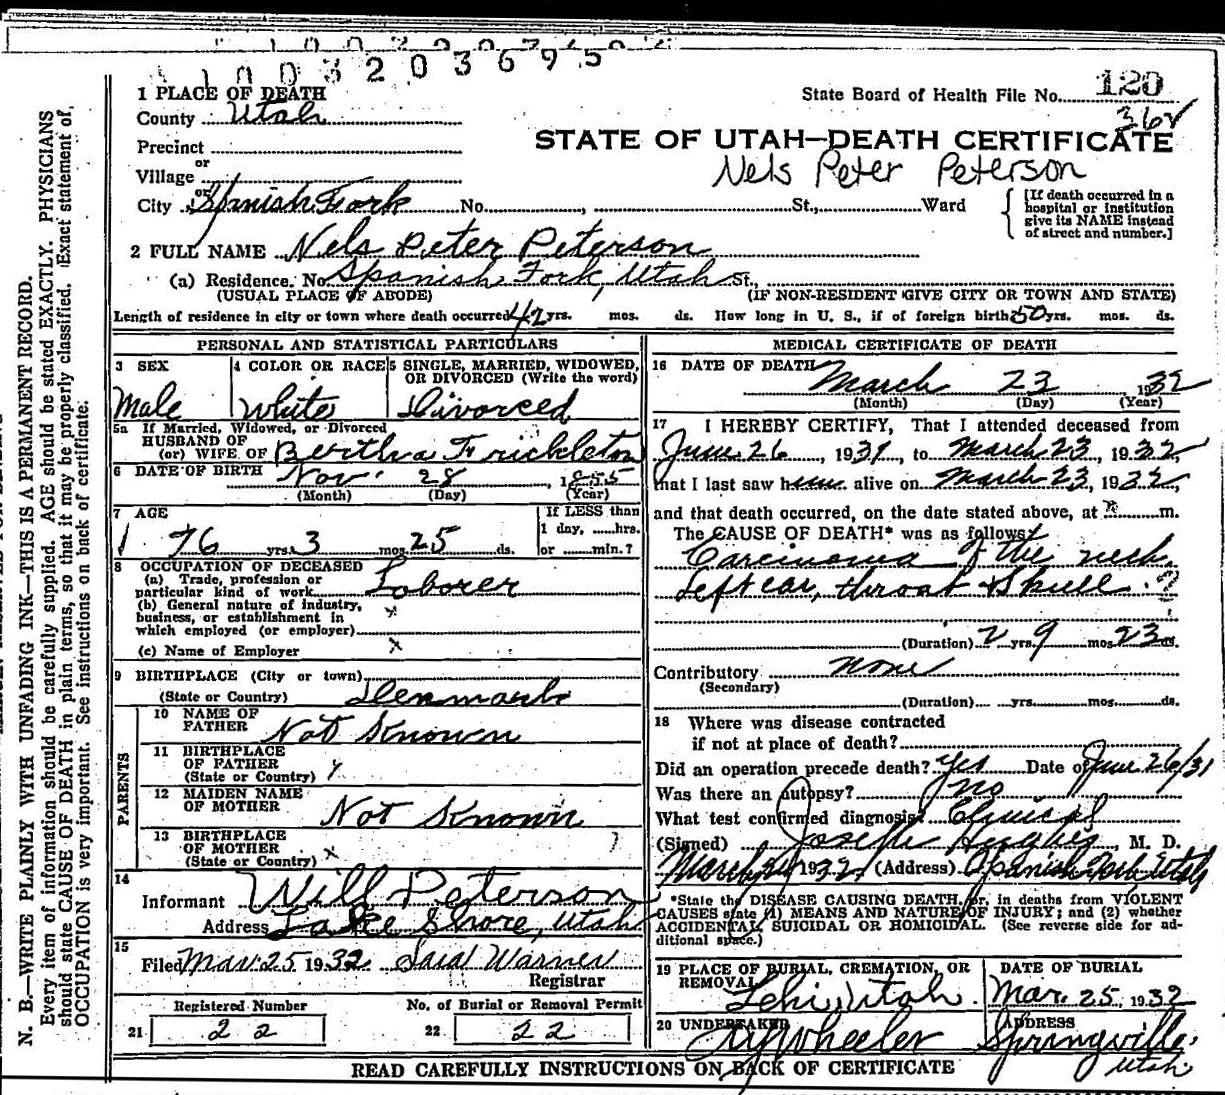 1003203695
1 PLACE OF DEATH
County Utah
Precinct
or
Village
or
City Spanish Fork No. St., Ward
State Board of Health File No. 120
368
STATE OF UTAH—DEATH CERTIFICATE
Nels Peter Peterson
[If death occurred in a
hospital or institution
give its NAME instead
of street and number.]
2 FULL NAME Nels Peter Peterson
(a) Residence. No. Spanish Fork, Utah St.,
(USUAL PLACE OF ABODE) (IF NON-RESIDENT GIVE CITY OR TOWN AND STATE)
Length of residence in city or town where death occurred 42 yrs. mos. ds. How long in U. S., if of foreign birth 50 yrs. mos. ds.
PERSONAL AND STATISTICAL PARTICULARS
3 SEX
Male
4 COLOR OR RACE
White
5 SINGLE, MARRIED, WIDOWED,
OR DIVORCED (Write the word)
Divorced
5a If Married, Widowed, or Divorced
HUSBAND OF
(or) WIFE OF Bertha Frickleton
6 DATE OF BIRTH Nov. 28, 1855
(Month) (Day) (Year)
7 AGE
76 yrs. 3 mos. 25 ds.
If LESS than
1 day, ......hrs.
or ......min.?
8 OCCUPATION OF DECEASED
(a) Trade, profession or
particular kind of work Laborer
(b) General nature of industry,
business, or establishment in x
which employed (or employer)
(c) Name of Employer x
9 BIRTHPLACE (City or town)
(State or Country) Denmark
PARENTS
10 NAME OF
FATHER Not Known
11 BIRTHPLACE
OF FATHER
(State or Country)
12 MAIDEN NAME
OF MOTHER Not Known
13 BIRTHPLACE
OF MOTHER
(State or Country) x
14
Informant Will Peterson
Address Lake Shore, Utah
15
Filed Mar. 25 1932 Warner
Registrar
Registered Number
21 22
No. of Burial or Removal Permit
22 22
MEDICAL CERTIFICATE OF DEATH
16 DATE OF DEATH
March 23 1932
(Month) (Day) (Year)
17 I HEREBY CERTIFY, That I attended deceased from
June 26, 1931, to March 23, 1932,
that I last saw him alive on March 23, 1932,
and that death occurred, on the date stated above, at m.
The CAUSE OF DEATH* was as follows:
Carcinoma of the neck,
left ear, throat & skull.
(Duration) 2 yrs. 9 mos. 23 ds.
Contributory none
(Secondary)
(Duration) yrs. mos. ds.
18 Where was disease contracted
if not at place of death?
Did an operation precede death? yes Date of June 26/31
Was there an autopsy? no
What test confirmed diagnosis? Clinical
(Signed) Hughes, M. D.
March 24 1932 (Address) Spanish Fork, Utah
*State the DISEASE CAUSING DEATH, or, in deaths from VIOLENT
CAUSES state (1) MEANS AND NATURE OF INJURY; and (2) whether
ACCIDENTAL, SUICIDAL OR HOMICIDAL. (See reverse side for ad-
ditional space.)
19 PLACE OF BURIAL, CREMATION, OR
REMOVAL
Lehi, Utah.
DATE OF BURIAL
Mar. 25, 1932
20 UNDERTAKER
Wheeler
ADDRESS
Springville,
Utah.
READ CAREFULLY INSTRUCTIONS ON BACK OF CERTIFICATE
N. B.—WRITE PLAINLY WITH UNFADING INK—THIS IS A PERMANENT RECORD.
Every item of information should be carefully supplied. AGE should be stated EXACTLY. PHYSICIANS
should state CAUSE OF DEATH in plain terms, so that it may be properly classified. Exact statement of
OCCUPATION is very important. See instructions on back of certificate.